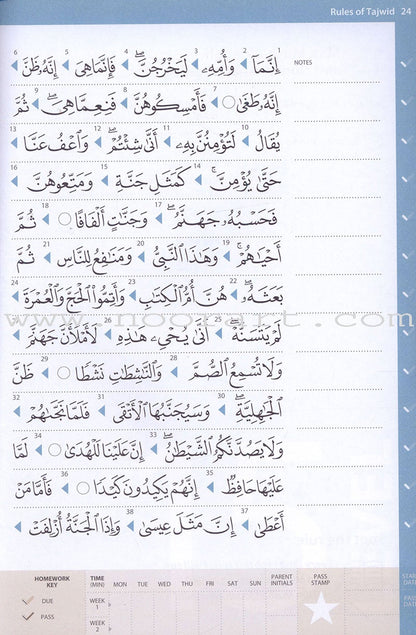 Rules of Tajwid 24
NOTES
1 إِنَّمَآ 2 وَأُمِّهِۦ 3 لَيَخْرُجُنَّ 4 فَإِنَّمَا هِىَ 5 إِنَّهُۥ ظَنَّ 6
إِنَّهُۥ طَغَىٰ 7 فَأَمْسِكُوهُنَّ 8 فَنِعِمَّا هِىَ 9 ثُمَّ
يُقَالُ 10 لَتُؤْمِنُنَّ بِهِۦ 11 أَنَّىٰ شِئْتُمْ 12 وَٱعْفُ عَنَّا 13
حَتَّىٰ يُؤْمِنَّ 14 كَمَثَلِ جَنَّةٍ 15 وَمَتِّعُوهُنَّ 16
فَحَسْبُهُۥ جَهَنَّمُ 17 وَجَنَّٰتٍ أَلْفَافًا 18 ثُمَّ
أَحْيَاهُمْ 19 وَهَٰذَا ٱلنَّبِىُّ 20 وَمَنَٰفِعُ لِلنَّاسِ 21 ثُمَّ
بَعَثَهُۥ 22 هُنَّ أُمُّ ٱلْكِتَٰبِ 23 وَأَتِمُّوا۟ ٱلْحَجَّ وَٱلْعُمْرَةَ 24
www.noorart.com
لَمْ يَتَسَنَّهْ 25 أَنَّىٰ يُحْىِۦ هَٰذِهِ 26 لَأَمْلَأَنَّ جَهَنَّمَ 27
وَلَا تُسْمِعُ ٱلصُّمَّ 28 وَٱلنَّٰشِطَٰتِ نَشْطًا 29 ظَنَّ
ٱلْجَٰهِلِيَّةِ 30 وَسَيُجَنَّبُهَا ٱلْأَتْقَى 31 فَلَمَّا نَجَّىٰهُمْ 32
وَلَا يَصُدَّنَّكُمُ ٱلشَّيْطَٰنُ 33 إِنَّ عَلَيْنَا لَلْهُدَىٰ 34 لَمَّا
عَلَيْهَا حَافِظٌ 35 إِنَّهُمْ يَكِيدُونَ كَيْدًا 36 فَأَمَّا مَنْ
أَعْطَىٰ 37 إِنَّ مَثَلَ عِيسَىٰ 38 وَإِذَا ٱلْجَنَّةُ أُزْلِفَتْ
HOMEWORK KEY TIME (MIN) MON TUE WED THU FRI SAT SUN PARENT INITIALS PASS STAMP
DUE WEEK 1
PASS WEEK 2